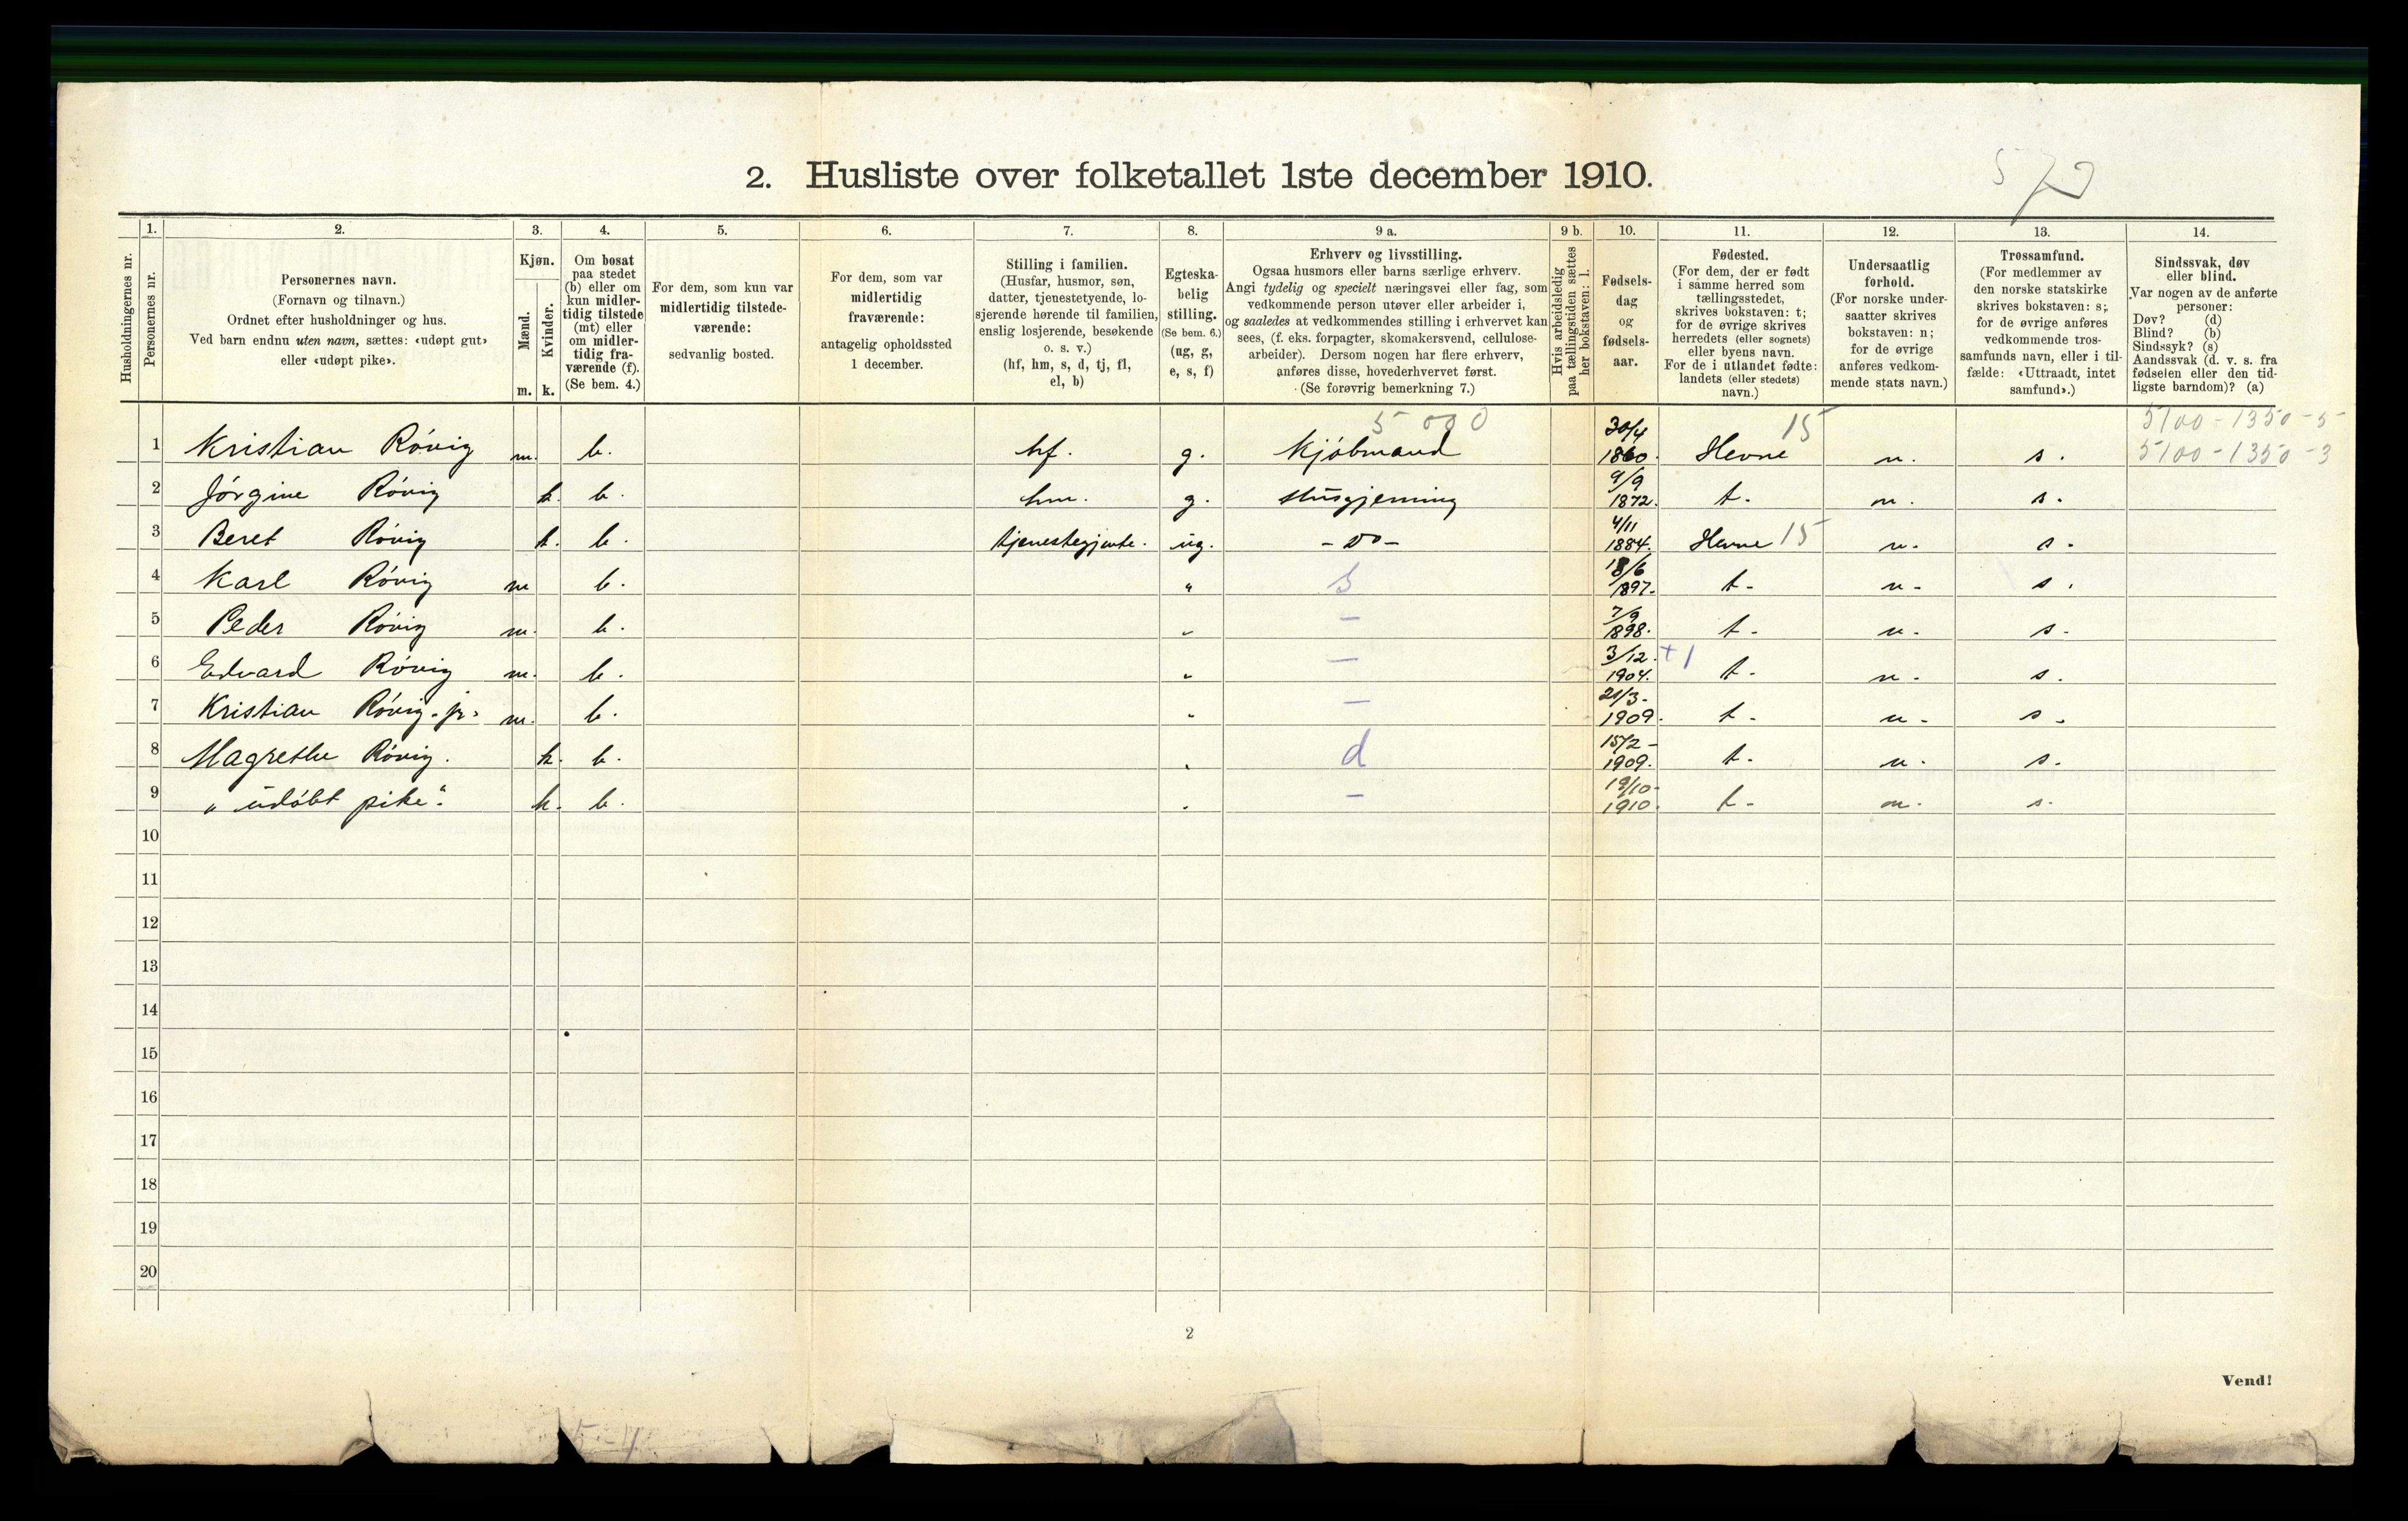 572
2. Husliste over folketallet 1ste december 1910.
Husholdningernes nr.
1.
Personernes nr.
2.
Personernes navn.
(Fornavn og tilnavn.)
Ordnet efter husholdninger og hus.
Ved barn endnu uten navn, sættes: «udøpt gut»
eller «udøpt pike».
3.
Kjøn.
Mænd.
m.
Kvinder.
k.
4.
Om bosat
paa stedet
(b) eller om
kun midler-
tidig tilstede
(mt) eller
om midler-
tidig fra-
værende (f).
(Se bem. 4.)
5.
For dem, som kun var
midlertidig tilstede-
værende:
sedvanlig bosted.
6.
For dem, som var
midlertidig
fraværende:
antagelig opholdssted
1 december.
7.
Stilling i familien.
(Husfar, husmor, søn,
datter, tjenestetyende, lo-
sjerende hørende til familien,
enslig losjerende, besøkende
o. s. v.)
(hf, hm, s, d, tj, fl,
el, b)
8.
Egteska-
belig
stilling.
(Se bem. 6.)
(ug, g,
e, s, f)
9 a.
Erhverv og livsstilling.
Ogsaa husmors eller barns særlige erhverv.
Angi tydelig og specielt næringsvei eller fag, som
vedkommende person utøver eller arbeider i,
og saaledes at vedkommendes stilling i erhvervet kan
sees, (f. eks. forpagter, skomakersvend, cellulose-
arbeider). Dersom nogen har flere erhverv,
anføres disse, hovederhvervet først.
(Se forøvrig bemerkning 7.)
9 b.
Hvis arbeidsledig
paa tællingstiden sættes
her bokstaven: l.
10.
Fødsels-
dag
og
fødsels-
aar.
11.
Fødested.
(For dem, der er født
i samme herred som
tællingsstedet,
skrives bokstaven: t;
for de øvrige skrives
herredets (eller sognets)
eller byens navn.
For de i utlandet fødte:
landets (eller stedets)
navn.)
12.
Undersaatlig
forhold.
(For norske under-
saatter skrives
bokstaven: n;
for de øvrige
anføres vedkom-
mende stats navn.)
13.
Trossamfund.
(For medlemmer av
den norske statskirke
skrives bokstaven: s;
for de øvrige anføres
vedkommende tros-
samfunds navn, eller i til-
fælde: «Uttraadt, intet
samfund».)
14.
Sindssvak, døv
eller blind.
Var nogen av de anførte
personer:
Døv? (d)
Blind? (b)
Sindssyk? (s)
Aandssvak (d. v. s. fra
fødselen eller den tid-
ligste barndom)? (a)
5000 15 5100-1350-5
1 Kristian Róvig m. b. hf. g. Kjóbmand 30/4 1860. Hevne n. s. 5100-1350-3
2 Jórgine Róvig k. b. hm. g. Husgjerning 9/9 1872. t. n. s.
3 Beret Róvig k. b. tjenestegjente. ug. -"- 4/11 1884. Hevne 15 n. s.
4 Karl Róvig m b. " s 18/6 1897. t. n. s.
5 Peder Róvig m. b. " - 7/9 1898. t. n. s.
6 Edvard Róvig m. b. " - 3/12. 1904. +1 t. n. s.
7 Kristian Róvig. jr. m. b. " - 21/3- 1909. t. n. s.
8 Magrethe Róvig. k. b. " d 15/2- 1909. t. n. s.
9 "udóbt pike". k. b. " - 19/10- 1910. t. n. s.
10
11
12
13
14
15
16
17
18
19
20
2
Vend!